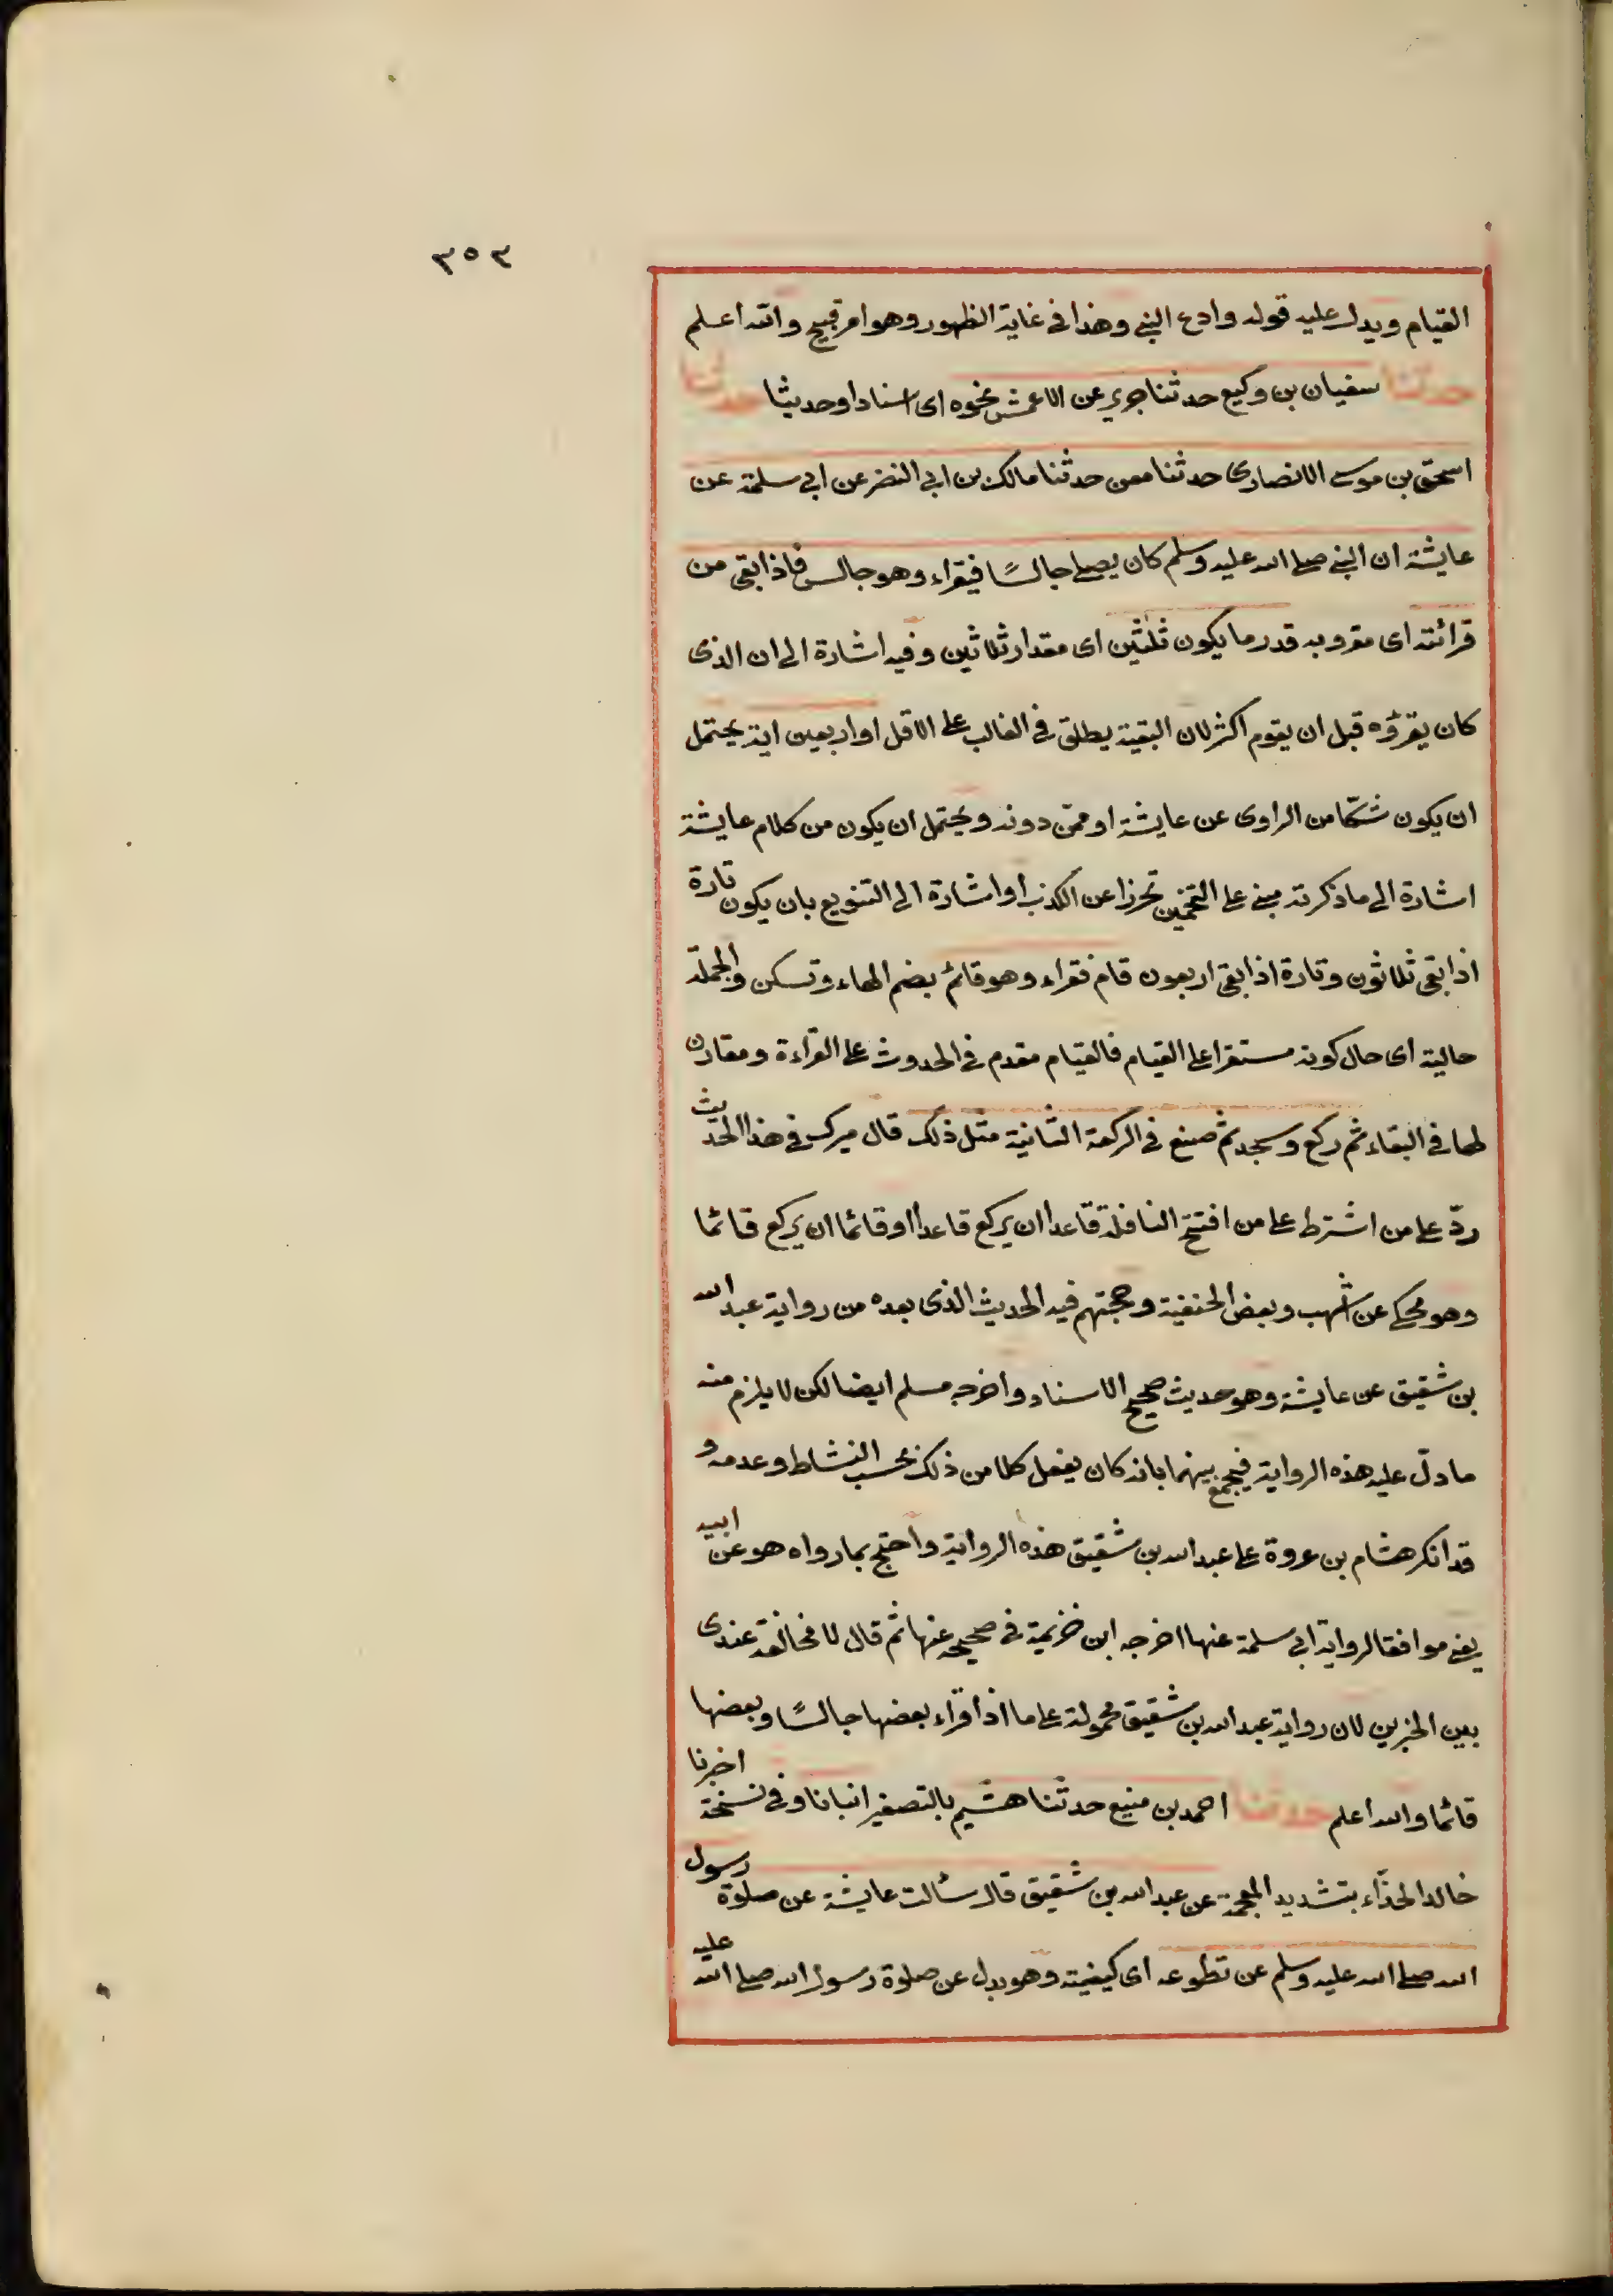 ٣٥٣
القيام ويدل عليه قوله وادع النبى وهذا فى غاية الظهور وهو امر قبيح والله اعلم
حدثنا سفيان بن وكيع حدثنا جرير عن الاعمش نحوه اى اسنادا وحديثا حدثنا
اسحق بن موسى الانصارى حدثنا معن حدثنا مالك بن ابى النضر عن ابى سلمة عن
عايشة ان النبى صلى الله عليه وسلم كان يصلى جالسًا فيقراء وهو جالس فاذا بقى من
قرائته اى مقروبه قدر ما يكون ثلثين اى مقدار ثلاثين وفيه اشارة الى ان الذى
كان يقرؤه قبل ان يقوم اكثر لان البقية يطلق فى الغالب على الاقل او اربعين اية يحتمل
ان يكون شكّا من الراوى عن عايشة او ممّن دونه ويحتمل ان يكون من كلام عايشة
اشارة الى ما ذكرته مبنى على التخمين تحرزا عن الكذب او اشارة الى التنويع بان يكون تارة
اذا بقى ثلاثون وتارة اذا بقى اربعون قام فقراء وهو قائم بضم الهاء وتسكن والجملة
حالية اى حال كونه مستقرا على القيام فالقيام مقدم فى الحدوث على القراءة ومقارن
لها فى البقاء ثم ركع وسجد ثم صنع فى الركعة الثانية مثل ذلك قال ميرك فى هذا الحديث
ردّ على من اشترط على من افتتح النافلة قاعدا ان يركع قاعدا او قائما ان يركع قائما
وهو محكى عن اشهب وبعض الحنفية وحجتهم فيه الحديث الذى بعده من رواية عبد الله
بن شقيق عن عايشة وهو حديث صحيح الاسناد واخرجه مسلم ايضا لكن لا يلزم منه
ما دلّ عليه هذه الرواية فيجمع بينهما بانه كان يفعل كلا من ذلك بحسب النشاط وعدمه و
قد انكر هشام بن عروة على عبد الله بن شقيق هذه الرواية واحتج بما رواه هو عن ابيه
يعنى موافقا لرواية ابى سلمة عنها اخرجه ابن خزيمة فى صحيحه عنها ثم قال لا مخالفة عندى
بين الخبرين لان رواية عبد الله بن شقيق محمولة على ما اذا قراء بعضها جالسًا وبعضها
قائما والله اعلم حدثنا احمد بن منيع حدثنا هشيم بالتصغير انبانا وفى نسخة اخبرنا
خالد الحذّاء بتشديد المعجمة عن عبد الله بن شقيق قال سئالت عايشة عن صلوة رسول
الله صلى الله عليه وسلم عن تطوعه اى كيفيته وهو بدل عن صلوة رسول الله صلى الله عليه